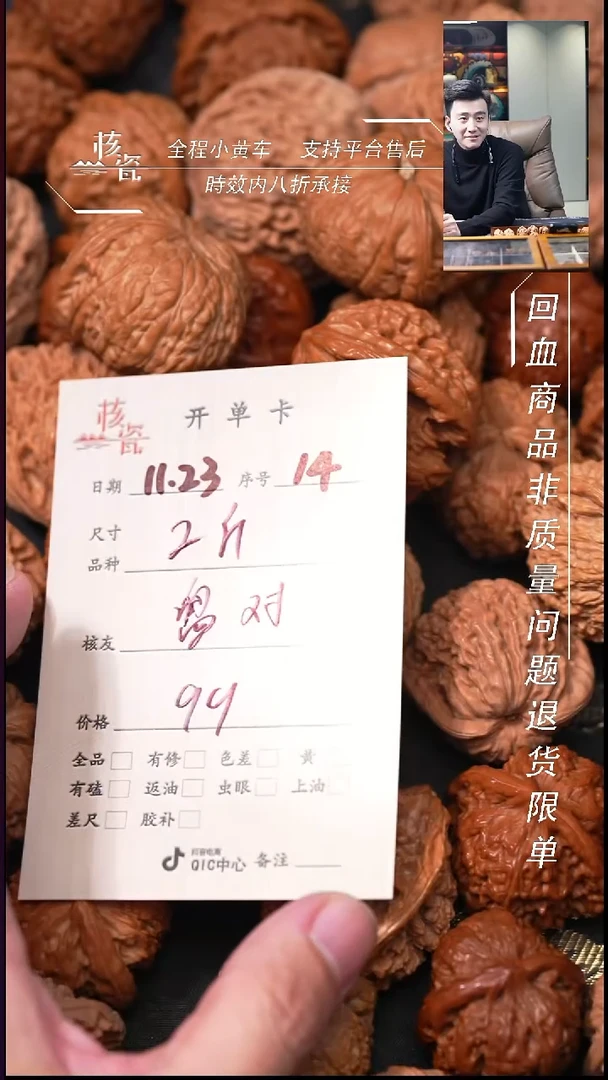 核瓷
全程小黄车 支持平台售后
時效内八折承接
回血商品非质量问题退货限单
核瓷
开单卡
日期 11.23 序号 14
尺寸
品种 2斤
核友 对
价格
全品 有修 色差 黄
有磕 返油 虫眼 上油
差尺 胶补
抖音电商
QIC中心 备注